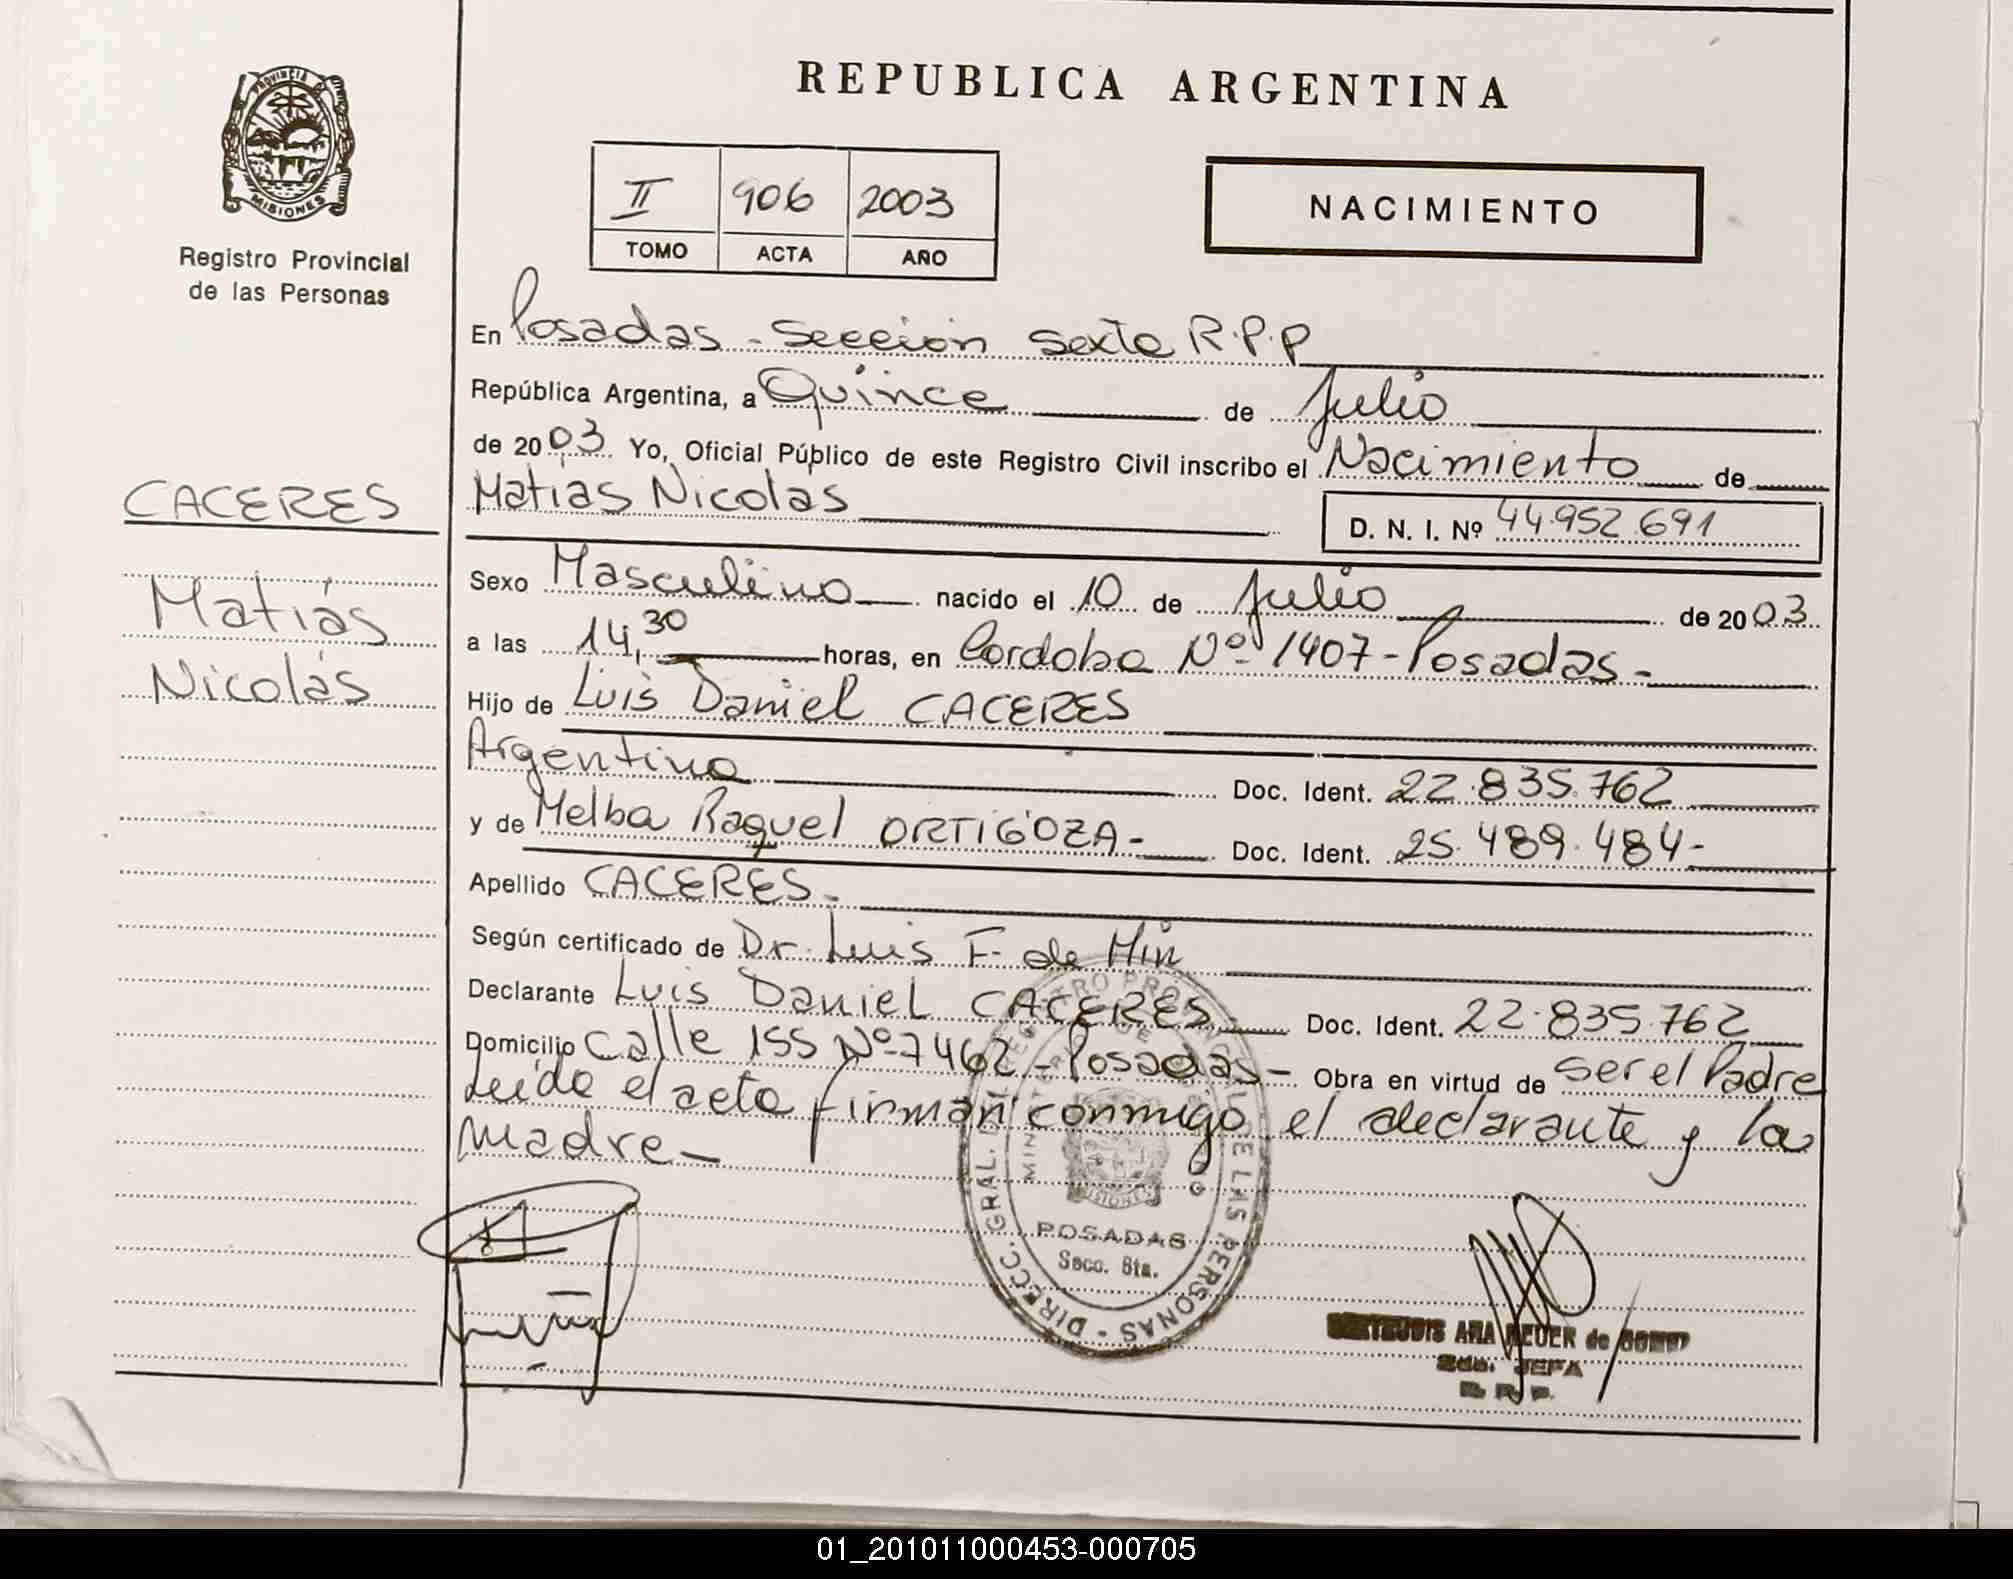 PROVINCIA D
MISIONES
Registro Provincial
de las Personas
REPUBLICA ARGENTINA
II 906 2003
TOMO ACTA AÑO
NACIMIENTO
En Posadas - Sección Sexta R.P.P
República Argentina, a Quince de Julio
de 2003 Yo, Oficial Público de este Registro Civil inscribo el Nacimiento de
CACERES
Matías Nicolás
D. N. I. Nº 44.952.691
Matiás
Nicolás
Sexo Masculino nacido el 10 de Julio de 2003
a las 14,30 horas, en Cordoba Nº 1407 - Posadas -
Hijo de Luis Daniel CACERES
Argentina Doc. Ident. 22.835.762
y de Melba Raquel ORTIGOZA - Doc. Ident. 25.489.484 -
Apellido CACERES -
Según certificado de Dr. Luis F. de Min
Declarante Luis Daniel CACERES Doc. Ident. 22.835.762
Domicilio Calle 155 Nº 7462 - Posadas - Obra en virtud de ser el Padre
Leído el acta firman conmigo el declarante y la
madre -
DIRECC. GRAL. DEL REGISTRO PROVINCIAL DE LAS PERSONAS -
POSADAS
Secc. 6ta.
MISIONES
ANA de
JEFA
01_201011000453-000705